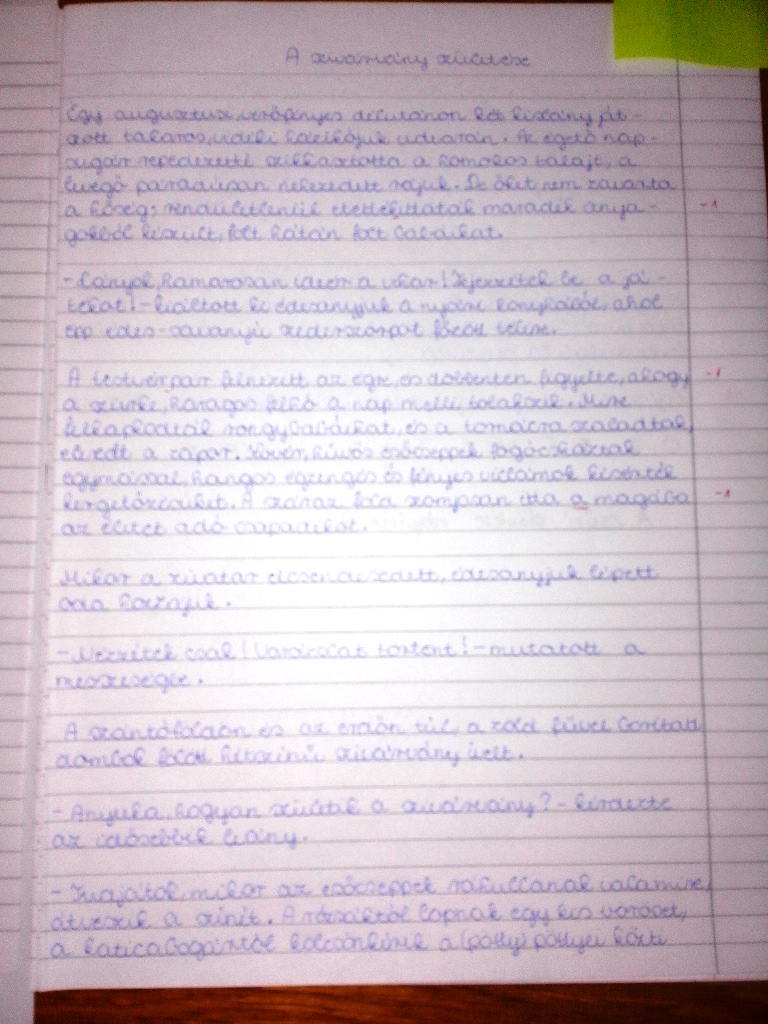 A szivárvány születése
Egy augusztusi, verőfényes délutánon két kislány ját-
szott takaros, vidéki házikójuk udvarán. Az égető nap-
sugár repedezetté szikkasztotta a homokos talajt, a
levegő páradúsan nehezedett rájuk. De őket nem zavarta
a hőség; rendületlenül etették, itatták maradék anya-
gokból készült, folt hátán folt babáikat.
- Lányok, hamarosan ideér a vihar! Fejezzétek be a já-
tékot! - kiáltott ki édesanyjuk a nyári konyhából, ahol
épp édes-savanyú szederszörpöt főzött télire.
A testvérpár felnézett az égre, és döbbenten figyelte, ahogy
a szürke, haragos felhő a nap mellé tolakszik. Mire
felkapkodták rongybabáikat, és a tornácra szaladtak,
eleredt a zápor. Kövér, hűvös esőcseppek fogócskáztak
egymással, hangos égzengés és fényes villámok kísérték
kergetőzésüket. A száraz föld szomjasan itta a magába
az életet adó csapadékot.
Mikor a zivatar elcsendesedett, édesanyjuk lépett
oda hozzájuk.
- Nézzétek csak! Varázslat történt! - mutatott a
messzeségbe.
A szántóföldön és az erdőn túl, a zöld fűvel borított
dombok fölött hétszínű szivárvány ívelt.
- Anyuka, hogyan születik a szivárvány? - kérdezte
az idősebbik leány.
- Tudjátok, mikor az esőcseppek ráhullanak valamire,
átveszik a színét. A rózsáktól lopnak egy kis vöröset,
a katicabogártól kölcsönkérik a (pötty) pöttyei közti
-1
-1
-1